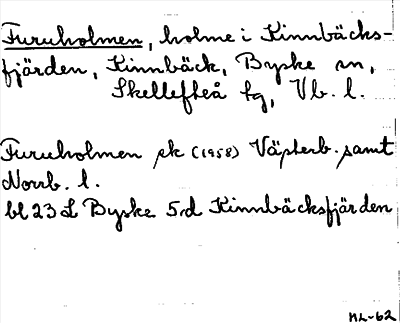 Furuholmen, holme i Kinnbäcks-
fjärden, Kinnbäck, Byske sn,
Skellefteå tg, Vb. l.
Furuholmen sk (1958) Västerb. samt
Norrb. l.
bl 23 L Byske 5d Kinnbäcksfjärden
ML-62